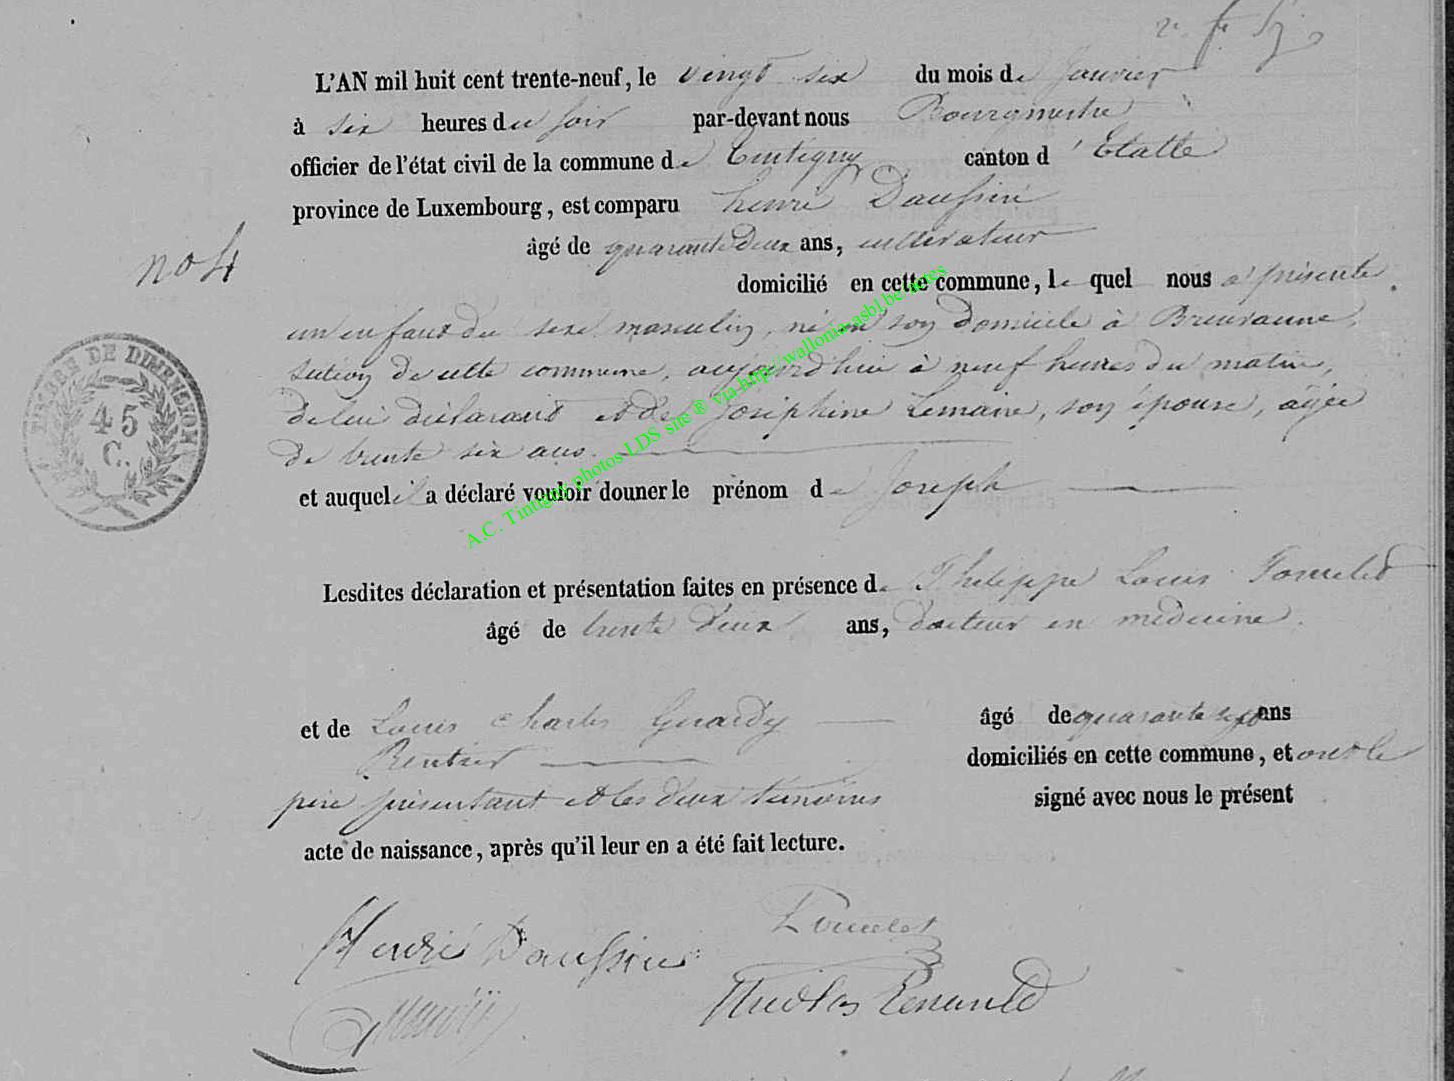 L'AN mil huit cent trente-neuf, le vingt six du mois de Janvier
à six heures du soir par-devant nous Bourgmestre
officier de l'état civil de la commune de Tintigny canton d'Etalle
province de Luxembourg, est comparu henri Daussin
âgé de quarante deux ans, cultivateur
no 4
domicilié en cette commune, le quel nous a présenté
un enfant du sexe masculin, né en son domicile à Breuvanne,
section de cette commune, aujourd'hui à neuf heures du matin,
de lui déclarant et de Joséphine Lemaire, son épouse, agée
de trente six ans.
et auquel il a déclaré vouloir donner le prénom de Joseph
TIMBRE DE DIMENSION
45
C.
A.C. Tintigny photos LDS site ® via http://wallonia-asbl.be/actes
Lesdites déclaration et présentation faites en présence de Philippe Louis
âgé de trente deux ans, docteur en medecine.
et de Louis Charles âgé de quarante sept ans
Rentier domiciliés en cette commune, et ont le
père présentant et les deux témoins signé avec nous le présent
acte de naissance, après qu'il leur en a été fait lecture.
Henri Daussin
Nicolas Renauld